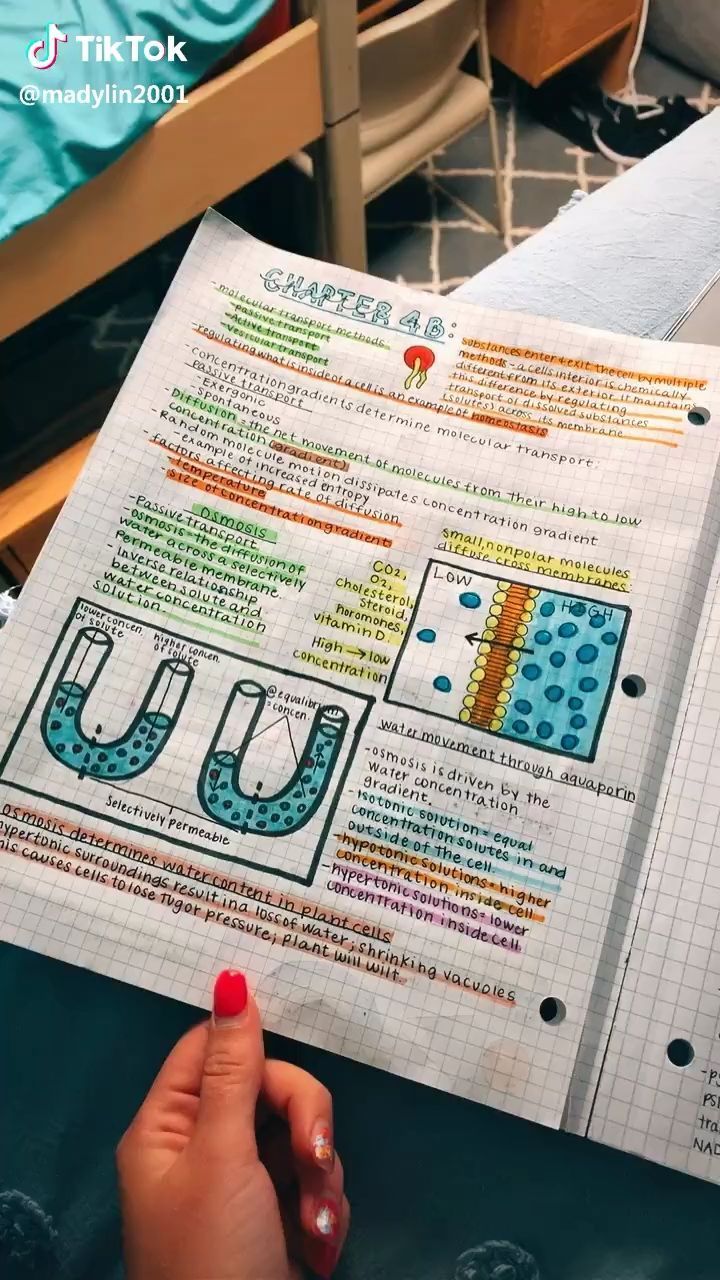 TikTok
@madylin2001
CHAPTER 4B:
-molecular transport methods
-passive transport
-Active transport
-vesicular transport
-regulating what is inside of a cell is an example of homeostasis
substances enter+exit the cell by multiple
methods-a cells interior is chemically
different from its exterior. it maintains
this difference by regulating
transport of dissolved substances
(solutes) across its membrane
-concentration gradients determine molecular transport:
passive transport
-Exergonic
-spontaneous
-Diffusion=the net movement of molecules from their high to low
concentration (gradient)
-Random molecule motion dissipates concentration gradient
-example of increased entropy
-factors affecting rate of diffusion
-temperature
-size of concentration gradient
osmosis
-Passive transport
-osmosis=the diffusion of
water across a selectively
permeable membrane.
-Inverse relationship
between solute and
water concentration
solution.
small, nonpolar molecules
diffuse cross membranes:
CO2,
O2,
cholesterol,
steroid,
horomones,
vitamin D.
High → low
concentration
LOW
HIGH
lower concen.
of solute
higher concen.
of solute
@equalibrium
=concen.
Selectively permeable
water movement through aquaporin
-osmosis is driven by the
water concentration
gradient.
-isotonic solution= equal
concentration solutes in and
outside of the cell.
-hypotonic solutions=higher
concentration inside cell
-hypertonic solutions=lower
concentration inside cell.
osmosis determines water content in plant cells
hypertonic surroundings result in a loss of water; shrinking vacuoles
this causes cells to lose tugor pressure; plant will wilt.
tra
NAD